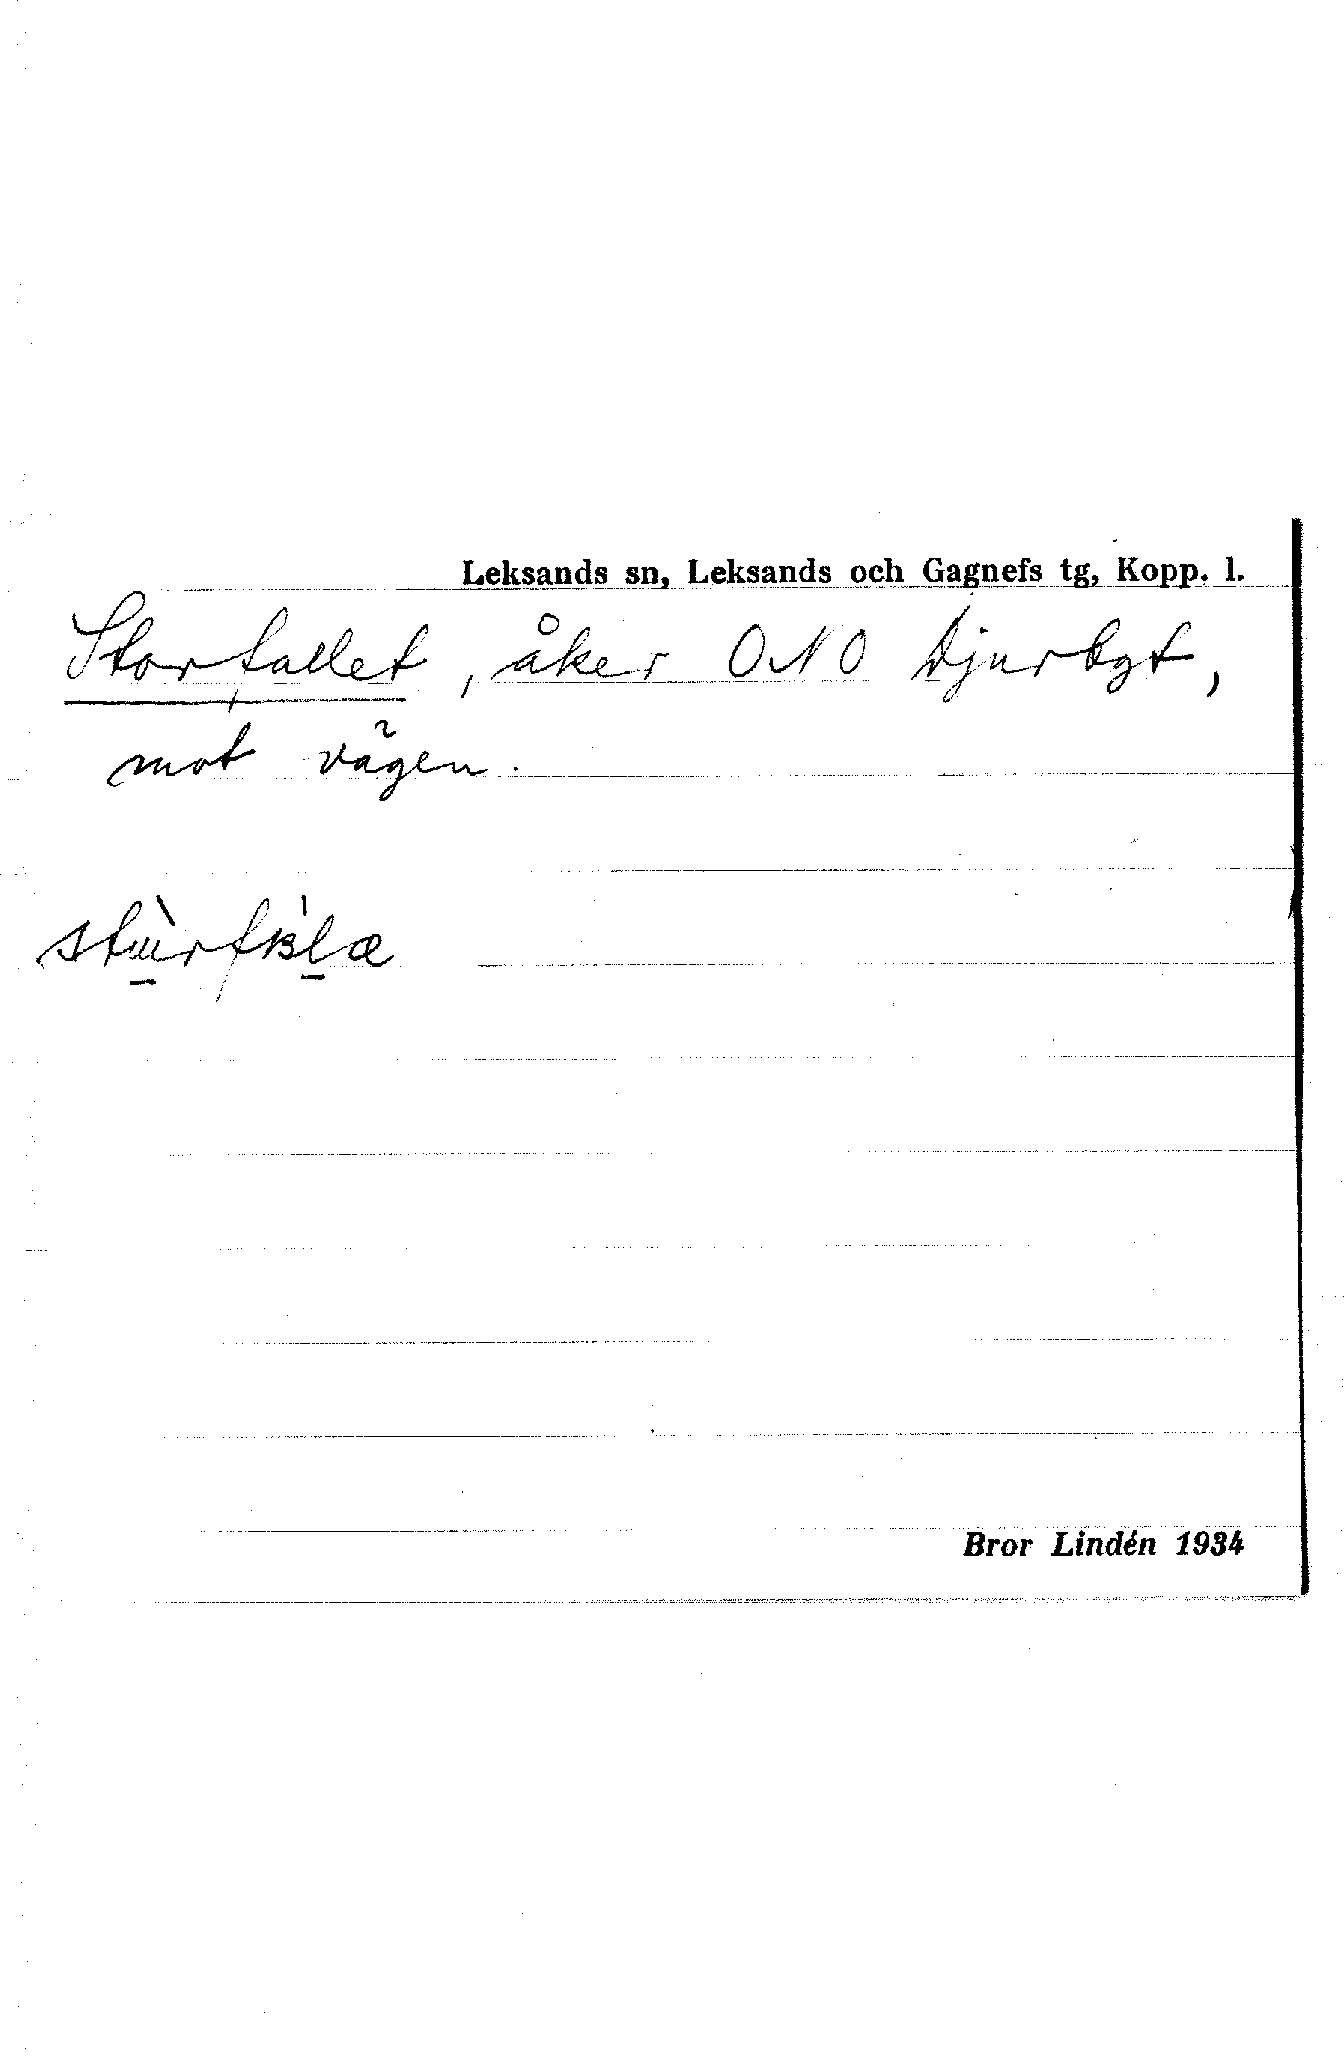 Leksands sn, Leksands och Gagnefs tg, Kopp. l.
Storfallet, åker ONO Djurbyt,
mot vägen.
Bror Lindén 1934